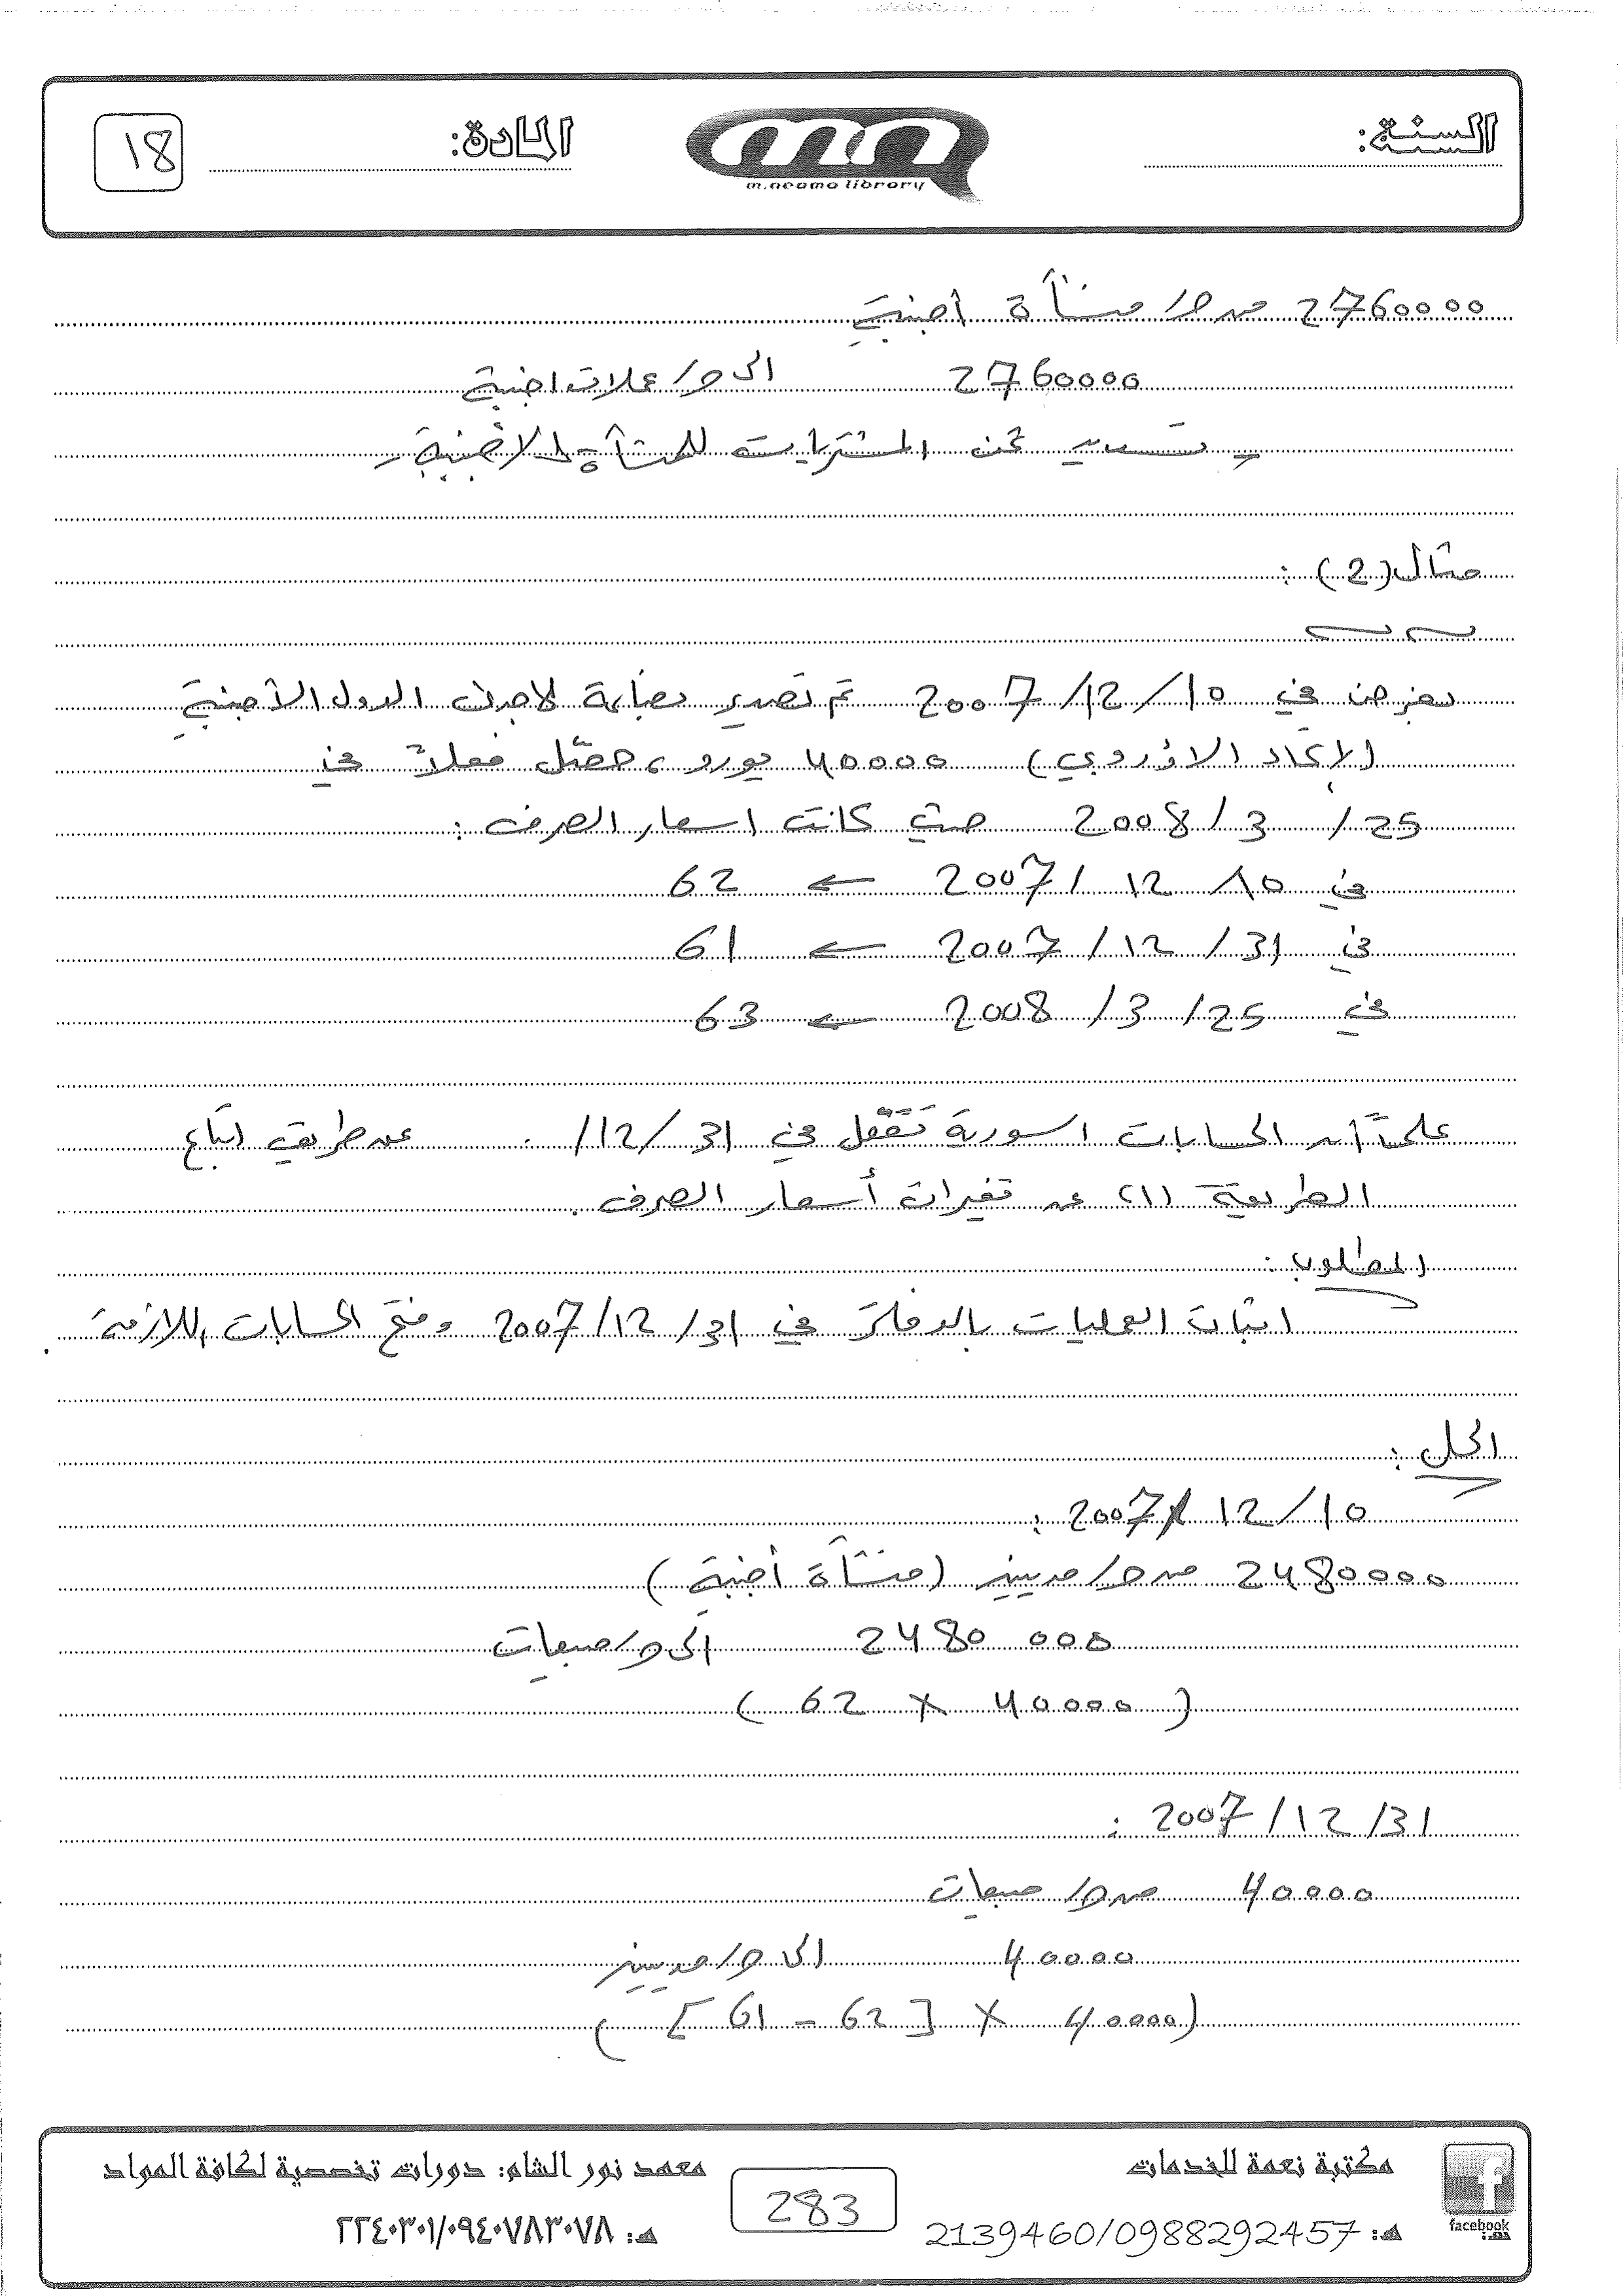 السنة:
m.neama library
المادة:
18
2760000 من ح/ منشأة أجنبية
2760000 إلى ح/ عملات اجنبية
تسديد ثمن المشتريات للمنشأة الأجنبية
مثال (2) :
بفرض في 10/12/2007 تم تصدير بضاعة لإحدى الدول الأجنبية
(الاتحاد الاوروبي) 40000 يورو، حصّل فعلاً في
25/3/2008 حيث كانت اسعار الصرف :
في 10/12/2007 ← 62
في 31/12/2007 ← 61
في 25/3/2008 ← 63
علماً أن الحسابات السورية تقفل في 31/12/ عن طريق اتباع
الطريقة (1) عن تغيرات أسعار الصرف .
المطلوب :
اثبات العمليات بالدفاتر في 31/12/2007 وفتح الحسابات اللازمة .
الحل :
10/12/2007 :
2480000 من ح/ مدينين (منشأة أجنبية)
2480000 إلى ح/ مبيعات
(40000 × 62)
31/12/2007 :
40000 من ح/ مبيعات
40000 إلى ح/ مدينين
(40000 × [62 - 61])
facebook
مكتبة نعمة للخدمات
هـ: 2139460/0988292457
283
معهد نور الشام: دورات تخصصية لكافة المواد
هـ: ٢٢٤٠٣٠١/٠٩٤٠٧٨٣٠٧٨